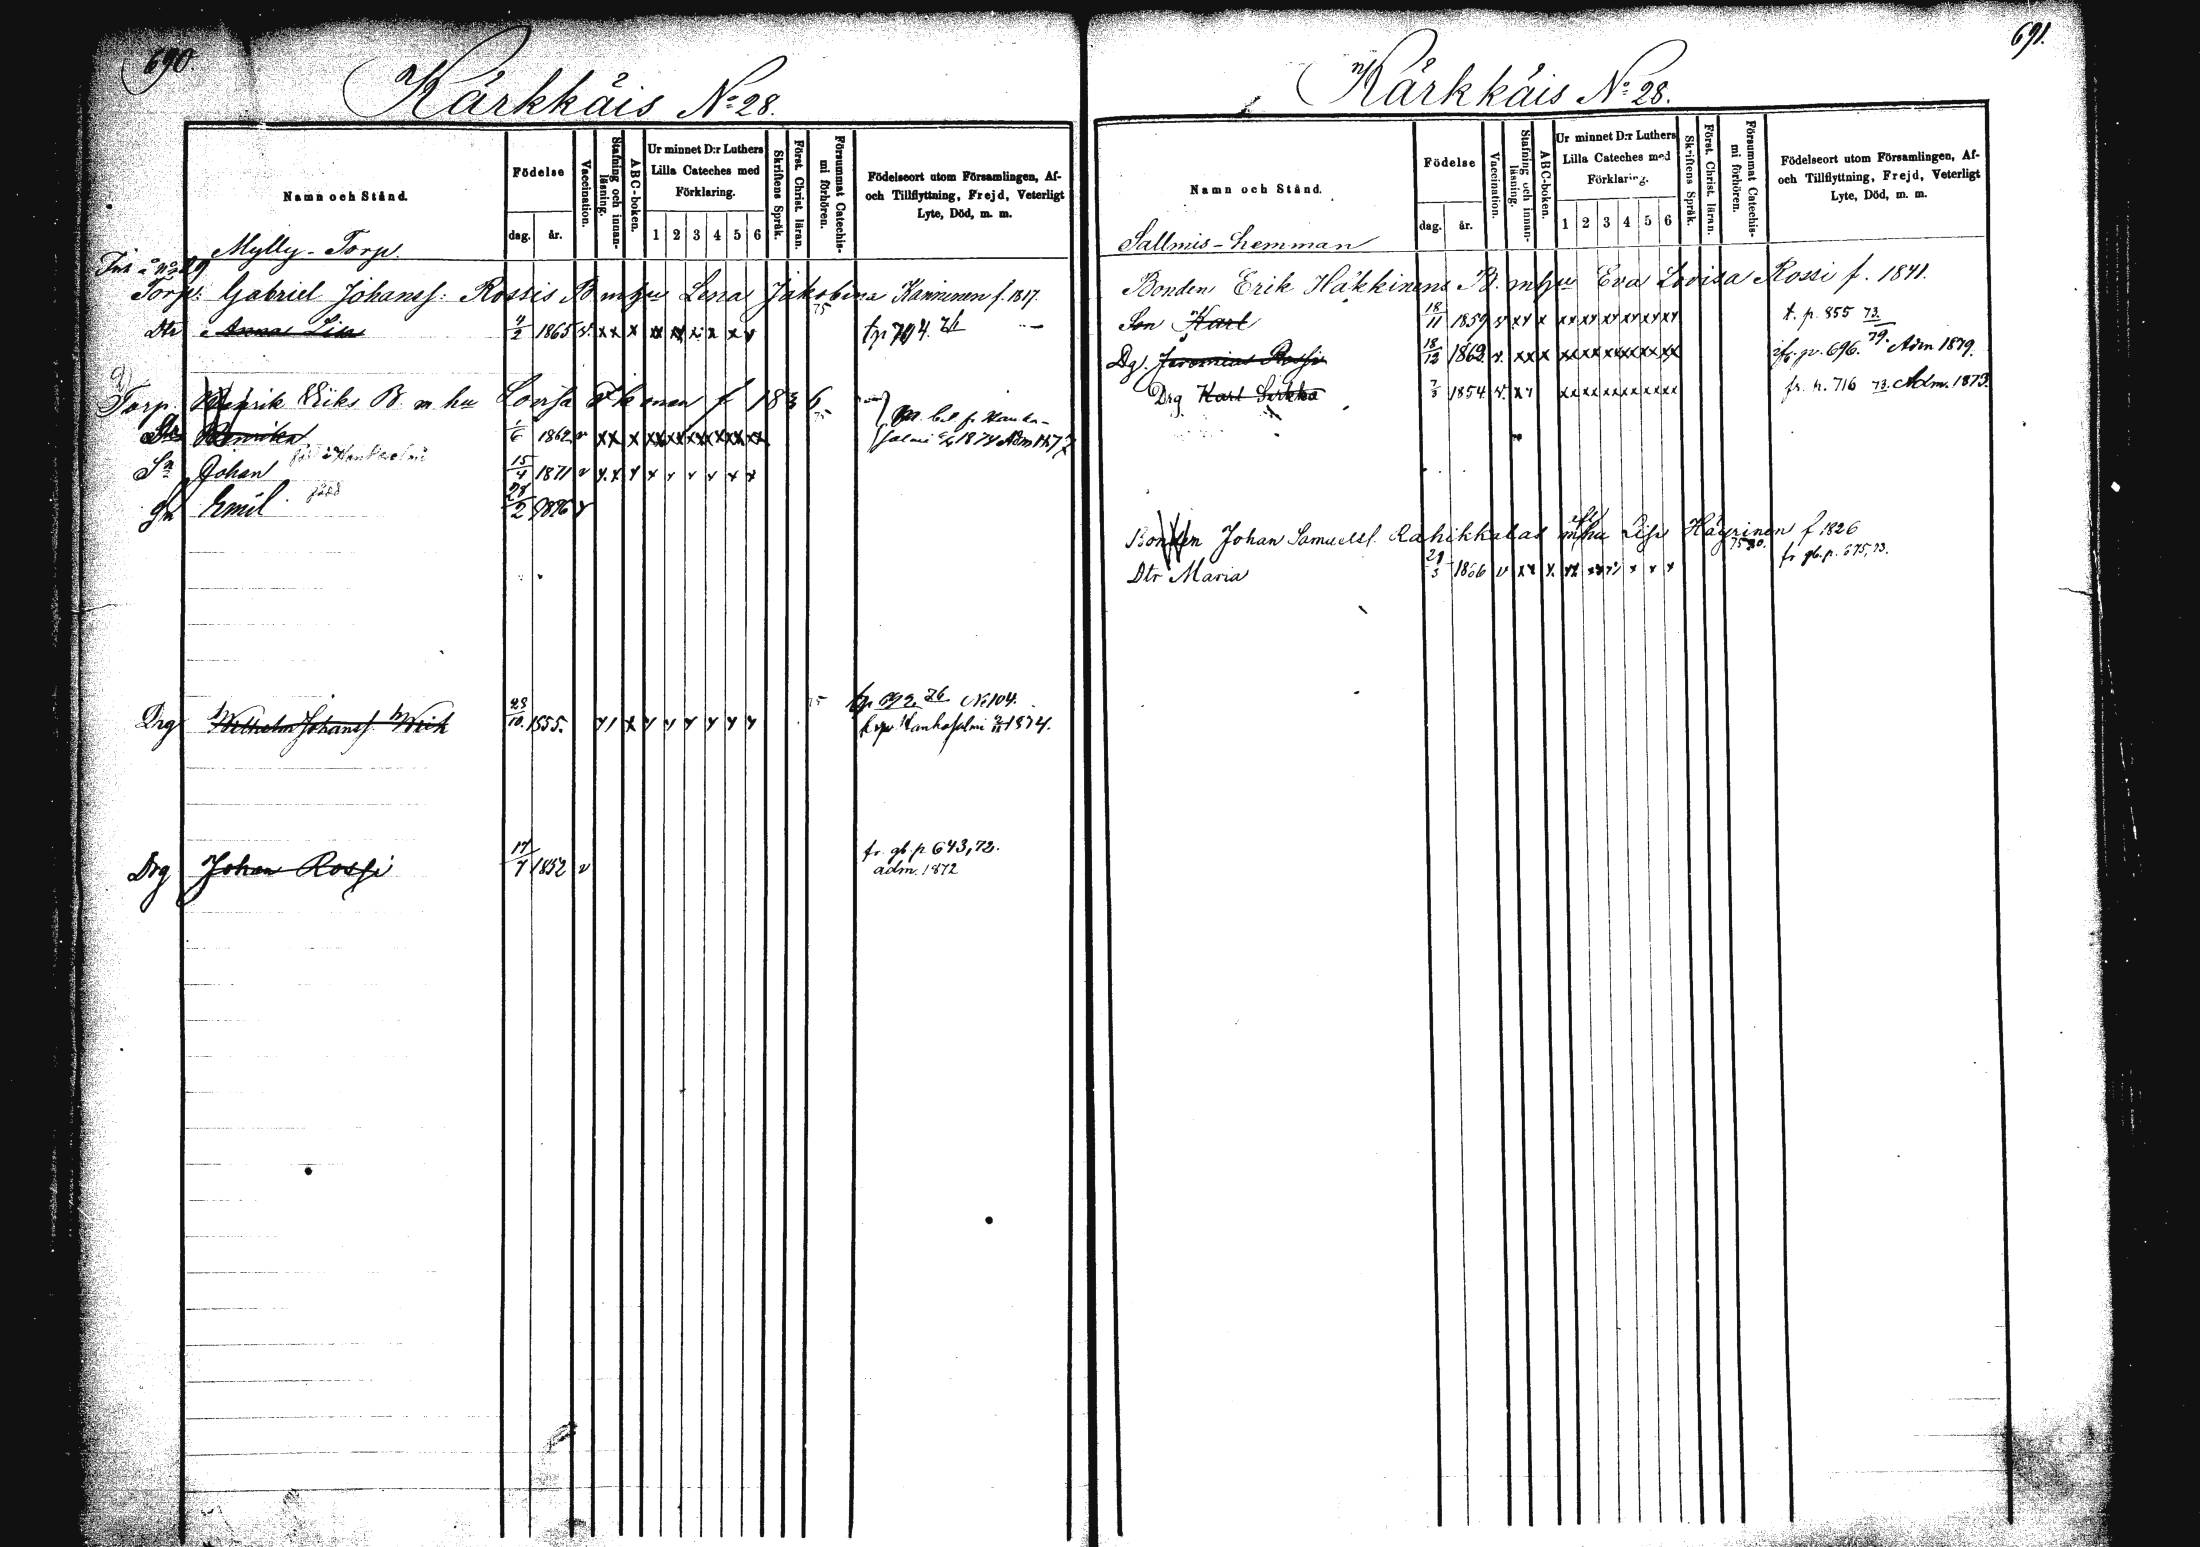 690.
Kärkkäis No 28.
Namn och Stånd.
Födelse
dag.
år.
Vaccination.
Stafning och innan-
läsning.
ABC-boken.
Ur minnet D:r Luthers
Lilla Cateches med
Förklaring.
1 2 3 4 5 6
Skriftens Språk.
Först. Christ. läran.
Försummat Catechis-
mi förhören.
Födelseort utom Församlingen, Af-
och Tillflyttning, Frejd, Veterligt
Lyte, Död, m. m.
Mylly-Torp.
Torp: Gabriel Johanss: Rossis B mhu Lena Jakobina Kaninen f. 1817.
75
Dtr Anna Lisa 4/2 1865 v. xx x xx xx x x x v
Torp. Henrik Wiiks B m hu Lovisa f 1836
75
1/6 1862 v xx x xx xx xx xx xx xx
Sn Johan 15/4 1871 v x x x x x x x x x
Sn Emil 28/2 1876 v
Drg Wilhelm Johanss Wiik 23/10. 1855. x x x x x x x x No 104.
Kankasalmi 1874.
Drg Johan Rossi 17/7 1852 v fr. gb. p 643, 72.
adm. 1872
691.
Kärkkäis No 28.
Namn och Stånd.
Födelse
dag.
år.
Vaccination.
Stafning och innan-
läsning.
ABC-boken.
Ur minnet D:r Luthers
Lilla Cateches med
Förklaring.
1 2 3 4 5 6
Skriftens Språk.
Först. Christ. läran.
Försummat Catechis-
mi förhören.
Födelseort utom Församlingen, Af-
och Tillflyttning, Frejd, Veterligt
Lyte, Död, m. m.
Sallmis-hemman
Bonden Erik Häkkinens B. mhu Eva Lovisa Rossi f. 1841.
Son Karl 18/11 1859 v xx x xx xx xx xx xx xx t. p. 855 73.
Dg. Jeremias Rossi 18/12 1862 v. xx x xx xx xx xx xx xx p. 696. 79. Adm 1879.
Drg Karl Sirkka 7/3 1854 v. x x xx xx xx xx xx xx fr. p. 716 73. Adm. 1873.
Bonden Johan Samuelss. Rahikkalas enkl mhu Lisa Häyrinen f 1826
Dtr Maria 29/3 1866 v xx x. xx xx xx x x x fr gb. p. 675, 73.